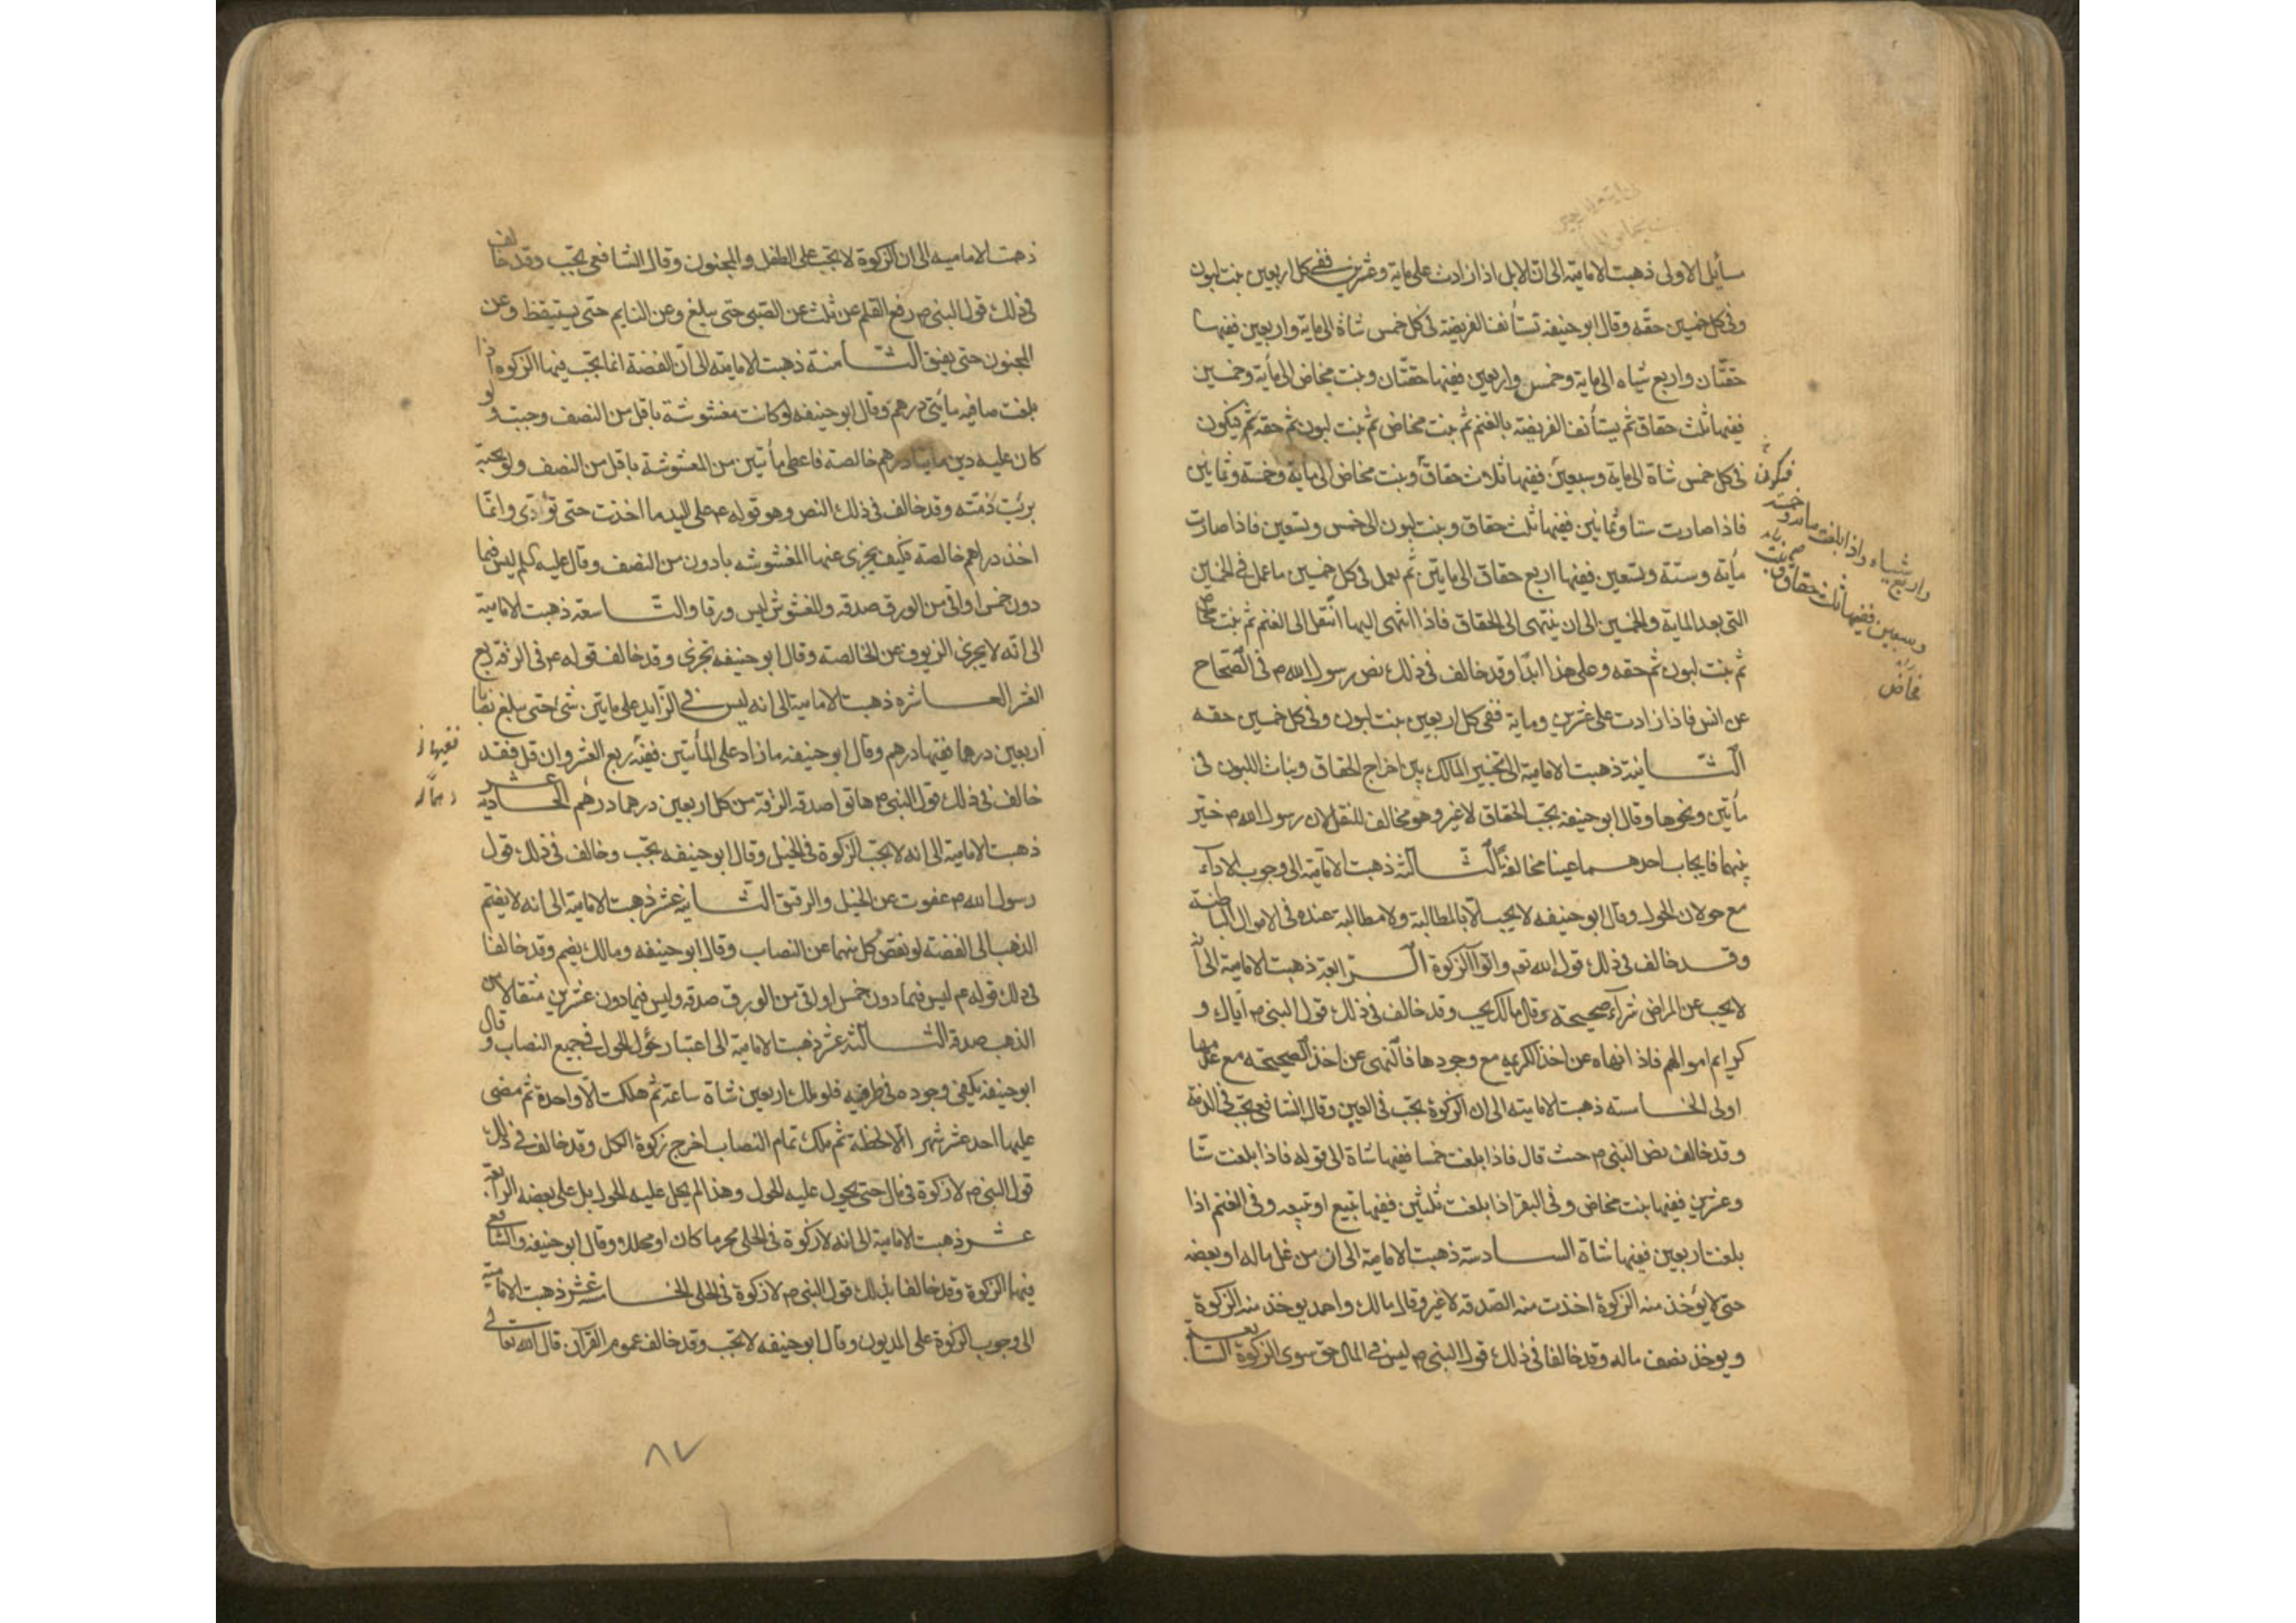 مسأيل الاولى ذهبت الامامية الى ان الابل اذا زادت على ماية وعشرين ففى كل اربعين بنت لبون
وفى كل خمسين حقه وقال ابو حنيفه تستأنف الفريضة فى كل خمس شاة الى ماية واربعين ففيها
حقتان واربع شياه الى ماية وخمس واربعين ففيها حقتان وبنت مخاض الى مأية وخمسين
ففيها ثلث حقاق ثم يستأنف الفريضة بالغنم ثم بنت مخاض ثم بنت لبون ثم حقه ثم فيكون
فى كل خمس شاة الى ماية وسبعين ففيها ثلاث حقاق وبنت مخاض الى ماية وخمسة وثمانين
فاذا صارت ستا وثمانين ففيها ثلث حقاق وبنت لبون الى خمس وتسعين فاذا صارت
مأية وستة وتسعين ففيها اربع حقاق الى مايتين ثم يعمل فى كل خمسين ما عمل فى الخمسين
التى بعد الماية والخمسين الى ان ينتهى الى الحقاق فاذا انتهى اليها انتقل الى الغنم ثم بنت مخاض
ثم بنت لبون ثم حقه وعلى هذا ابدا وقد خالف فى ذلك نص رسول الله ص فى الصحاح
عن انس فاذا زادت على عشرين وماية ففى كل اربعين بنت لبون وفى كل خمسين حقه
الثانية ذهبت الامامية الى تخيير المالك بين اخراج الحقاق وبنات اللبون فى
مأتين ونحوها وقال ابو حنيفه يجب الحقاق لا غير وهو مخالف للنقل لان رسول الله ص خير
بينهما فايجاب احدهما عينا مخالفة الثالثة ذهبت الامامية الى وجوب الاداء
مع حولان الحول وقال ابو حنيفه لا يجب الا بالمطالبة ولا مطالبة عنده فى الاموال الباطنة
وقد خالف فى ذلك قول الله تعه واتوا الزكوة الرابعة ذهبت الامامية الى ان
لا يجب عن المراض شراء صحيحة وقال مالك يجب وقد خالف فى ذلك قول النبى ص اياك و
كرايم اموالهم فاذا نهاه عن اخذ الكريمه مع وجودها فالنهى عن اخذ الصحيحه مع عدمها
اولى الخامسه ذهبت الامامية الى ان الزكوة تجب فى العين وقال الشافعى تجب فى الذمة
وقد خالف نص النبى ص حيث قال فاذا بلغت خمسا ففيها شاة الى قوله فاذا بلغت ستا
وعشرين ففيها بنت مخاض وفى البقر اذا بلغت ثلثين ففيها تبيع او تبيعه وفى الغنم اذا
بلغت اربعين ففيها شاة السادسة ذهبت الامامية الى ان من غل ماله او بعضه
حتى لا يؤخذ منه الزكوة اخذت منه الصدقه لا غير وقال مالك واحمد يوخذ منه الزكوة
ويوخذ نصف ماله وقد خالفا فى ذلك قول النبى ص ليس فى المال حق سوى الزكوة السابعة
فيكون
واربع شياه واذا بلغت مائة وخمسة
وسبعين ففيها ثلث حقاق وبنت
مخاض
ذهبت الاماميه الى ان الزكوة لا تجب على الطفل والمجنون وقال الشافعى تجب وقد خالف
فى ذلك قول النبى ص رفع القلم عن ثلث عن الصبى حتى يبلغ وعن النايم حتى يستيقظ وعن
المجنون حتى يفيق الثامنة ذهبت الامامية الى ان الفضة انما تجب فيها الزكوه اذا
بلغت صافيه مأيتى درهم وقال ابو حنيفه لو كانت مغشوشة باقل من النصف وجبت ولو
كان عليه دين مايتا درهم خالصة فاعطى مأيتين من المغشوشة باقل من النصف
برئت ذمته وقد خالف فى ذلك النص وهو قوله ع على اليد ما اخذت حتى تؤدى وانما
اخذ دراهم خالصة فكيف يجزى عنها المغشوشه بادون من النصف وقال عليه السلم ليس فيما
دون خمس اواقى من الورق صدقه والمغشوش ليس ورقا والتاسعة ذهبت الامامية
الى انه لا يجزى الزيوف عن الخالصة وقال ابو حنيفه تجزى وقد خالف قوله ع فى الرقه ربع
العشر العاشره ذهبت الامامية الى انه ليس فى الزايد على مايتين شىء حتى يبلغ نصابا
اربعين درهما ففيها درهم وقال ابو حنيفه ما زاد على المأتين ففيه ربع العشر وان قل فقد
خالف فى ذلك قول النبى ص هاتوا صدقه الرقة من كل اربعين درهما درهم الحادية عشر
ذهبت الامامية الى انه لا تجب الزكوة فى الخيل وقال ابو حنيفه تجب وخالف فى ذلك قول
رسول الله ص عفوت عن الخيل والرقيق الثانية عشر ذهبت الامامية الى انه لا يضم
الذهب الى الفضة لو نقص كل منهما عن النصاب وقال ابو حنيفه ومالك يضم وقد خالفا
فى ذلك قوله ع ليس فيما دون خمس اواقى من الورق صدقه وليس فيما دون عشرين مثقالا من
الذهب صدقة الثالثة عشر ذهبت الامامية الى اعتبار حؤل الحول فى جميع النصاب وقال
ابو حنيفه يكفى وجوده فى طرفيه فلو ملك اربعين شاة ساعة ثم هلكت الا واحدة ثم مضى
عليها احد عشر شهرا الا لحظة ثم ملك تمام النصاب اخرج زكوة الكل وقد خالف فى ذلك
قول النبى ص لا زكوة فى مال حتى يحول عليه الحول وهذا لم يحل عليه الحول بل على بعضه الرابعة
عشر ذهبت الامامية الى انه لا زكوة فى الحلى محرما كان او محللا وقال ابو حنيفه والشافعى
فيها الزكوة وقد خالفا بذلك قول النبى ص لا زكوة فى الحلى الخامسة عشر ذهبت الامامية
الى وجوب الزكوة على المديون وقال ابو حنيفه لا تجب وقد خالف عموم القرآن قال الله تعالى
ففيها
٨٧